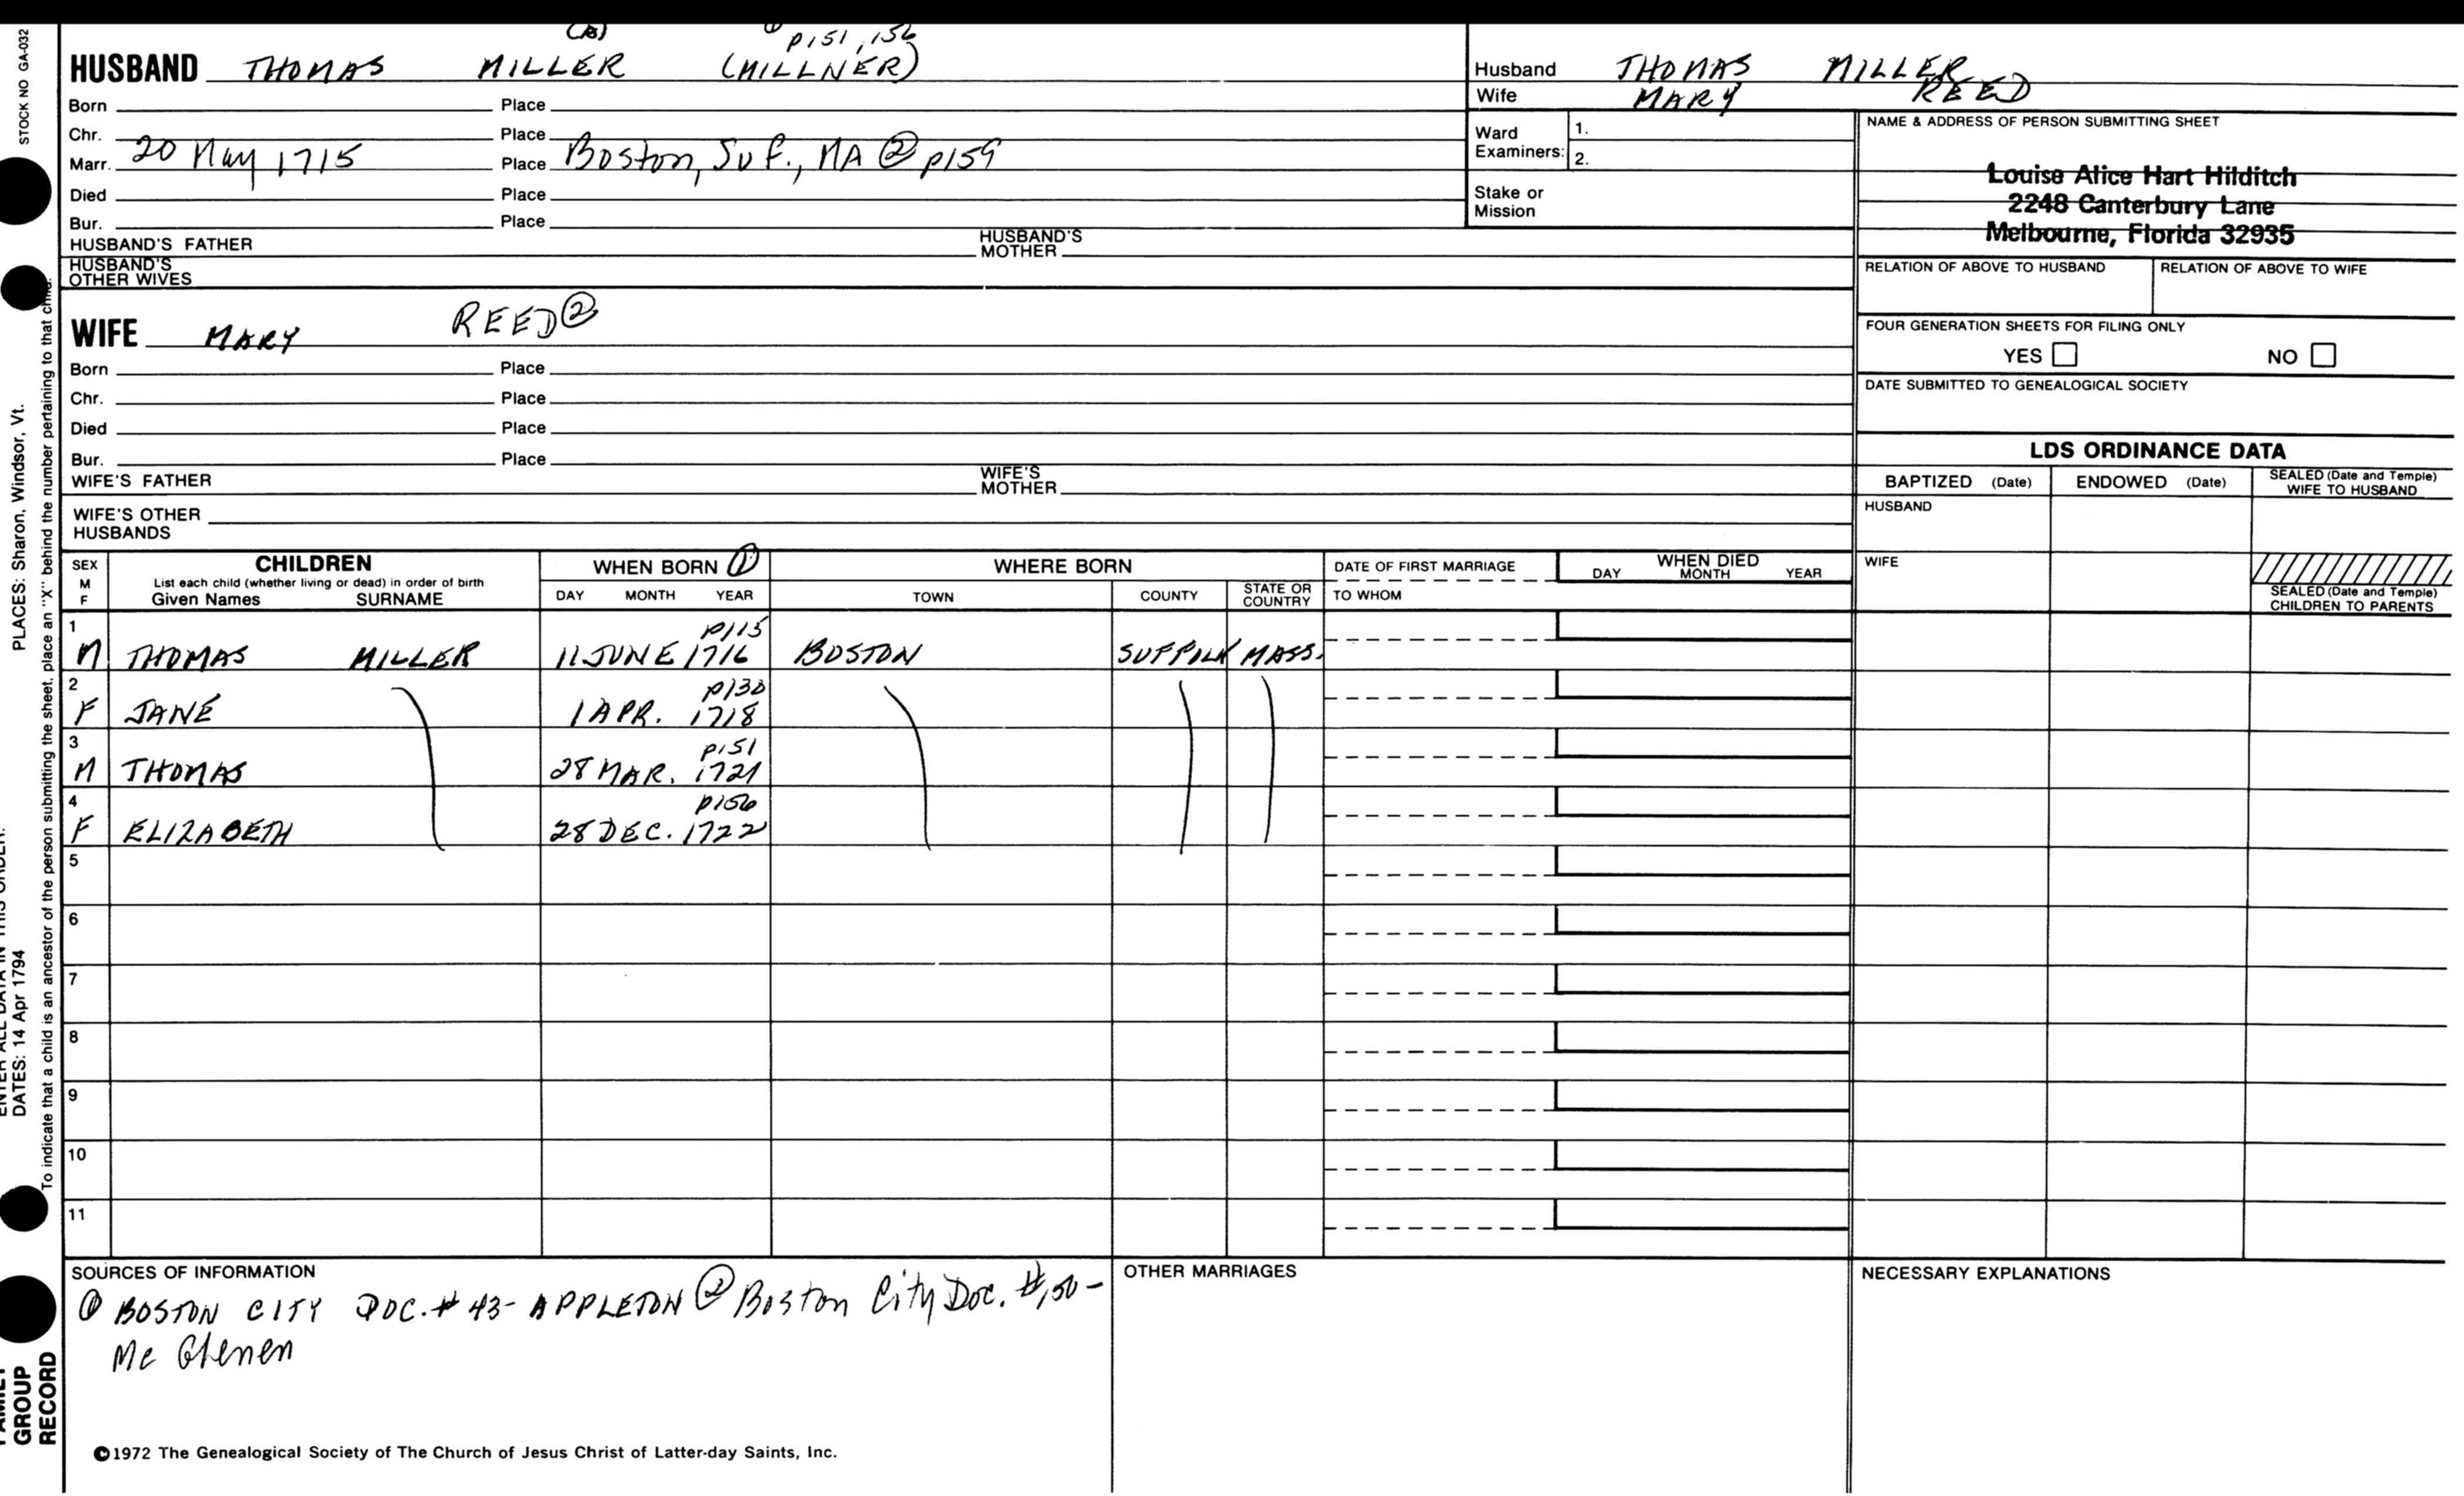 STOCK NO GA-032
PLACES: Sharon, Windsor, Vt.
DATES: 14 Apr 1794
To indicate that a child is an ancestor of the person submitting the sheet, place an "X" behind the number pertaining to that child.
GROUP
RECORD
① p151, 156
HUSBAND THOMAS MILLER (MILLNER)
Born Place
Chr. Place
Marr. 20 May 1715 Place Boston, Suf., MA ② p159
Died Place
Bur. Place
HUSBAND'S FATHER HUSBAND'S MOTHER
HUSBAND'S OTHER WIVES
WIFE MARY REED ②
Born Place
Chr. Place
Died Place
Bur. Place
WIFE'S FATHER WIFE'S MOTHER
WIFE'S OTHER HUSBANDS
Husband THOMAS MILLER
Wife MARY REED
Ward Examiners: 1.
2.
Stake or Mission
NAME & ADDRESS OF PERSON SUBMITTING SHEET
Louise Alice Hart Hilditch
2248 Canterbury Lane
Melbourne, Florida 32935
RELATION OF ABOVE TO HUSBAND RELATION OF ABOVE TO WIFE
FOUR GENERATION SHEETS FOR FILING ONLY
YES NO
DATE SUBMITTED TO GENEALOGICAL SOCIETY
LDS ORDINANCE DATA
BAPTIZED (Date) ENDOWED (Date) SEALED (Date and Temple) WIFE TO HUSBAND
HUSBAND
WIFE
SEALED (Date and Temple) CHILDREN TO PARENTS
SEX M F CHILDREN WHEN BORN ① WHERE BORN DATE OF FIRST MARRIAGE WHEN DIED
List each child (whether living or dead) in order of birth
Given Names SURNAME DAY MONTH YEAR TOWN COUNTY STATE OR COUNTRY TO WHOM DAY MONTH YEAR
1 p115
M THOMAS MILLER 11 JUNE 1716 BOSTON SUFFOLK MASS.
2 p130
F JANE 1 APR. 1718
3 p151
M THOMAS 28 MAR. 1721
4 p156
F ELIZABETH 28 DEC. 1722
5
6
7
8
9
10
11
SOURCES OF INFORMATION
① BOSTON CITY DOC. # 43 - APPLETON ② Boston City Doc. #150 -
Mc Glenen
OTHER MARRIAGES
NECESSARY EXPLANATIONS
©1972 The Genealogical Society of The Church of Jesus Christ of Latter-day Saints, Inc.